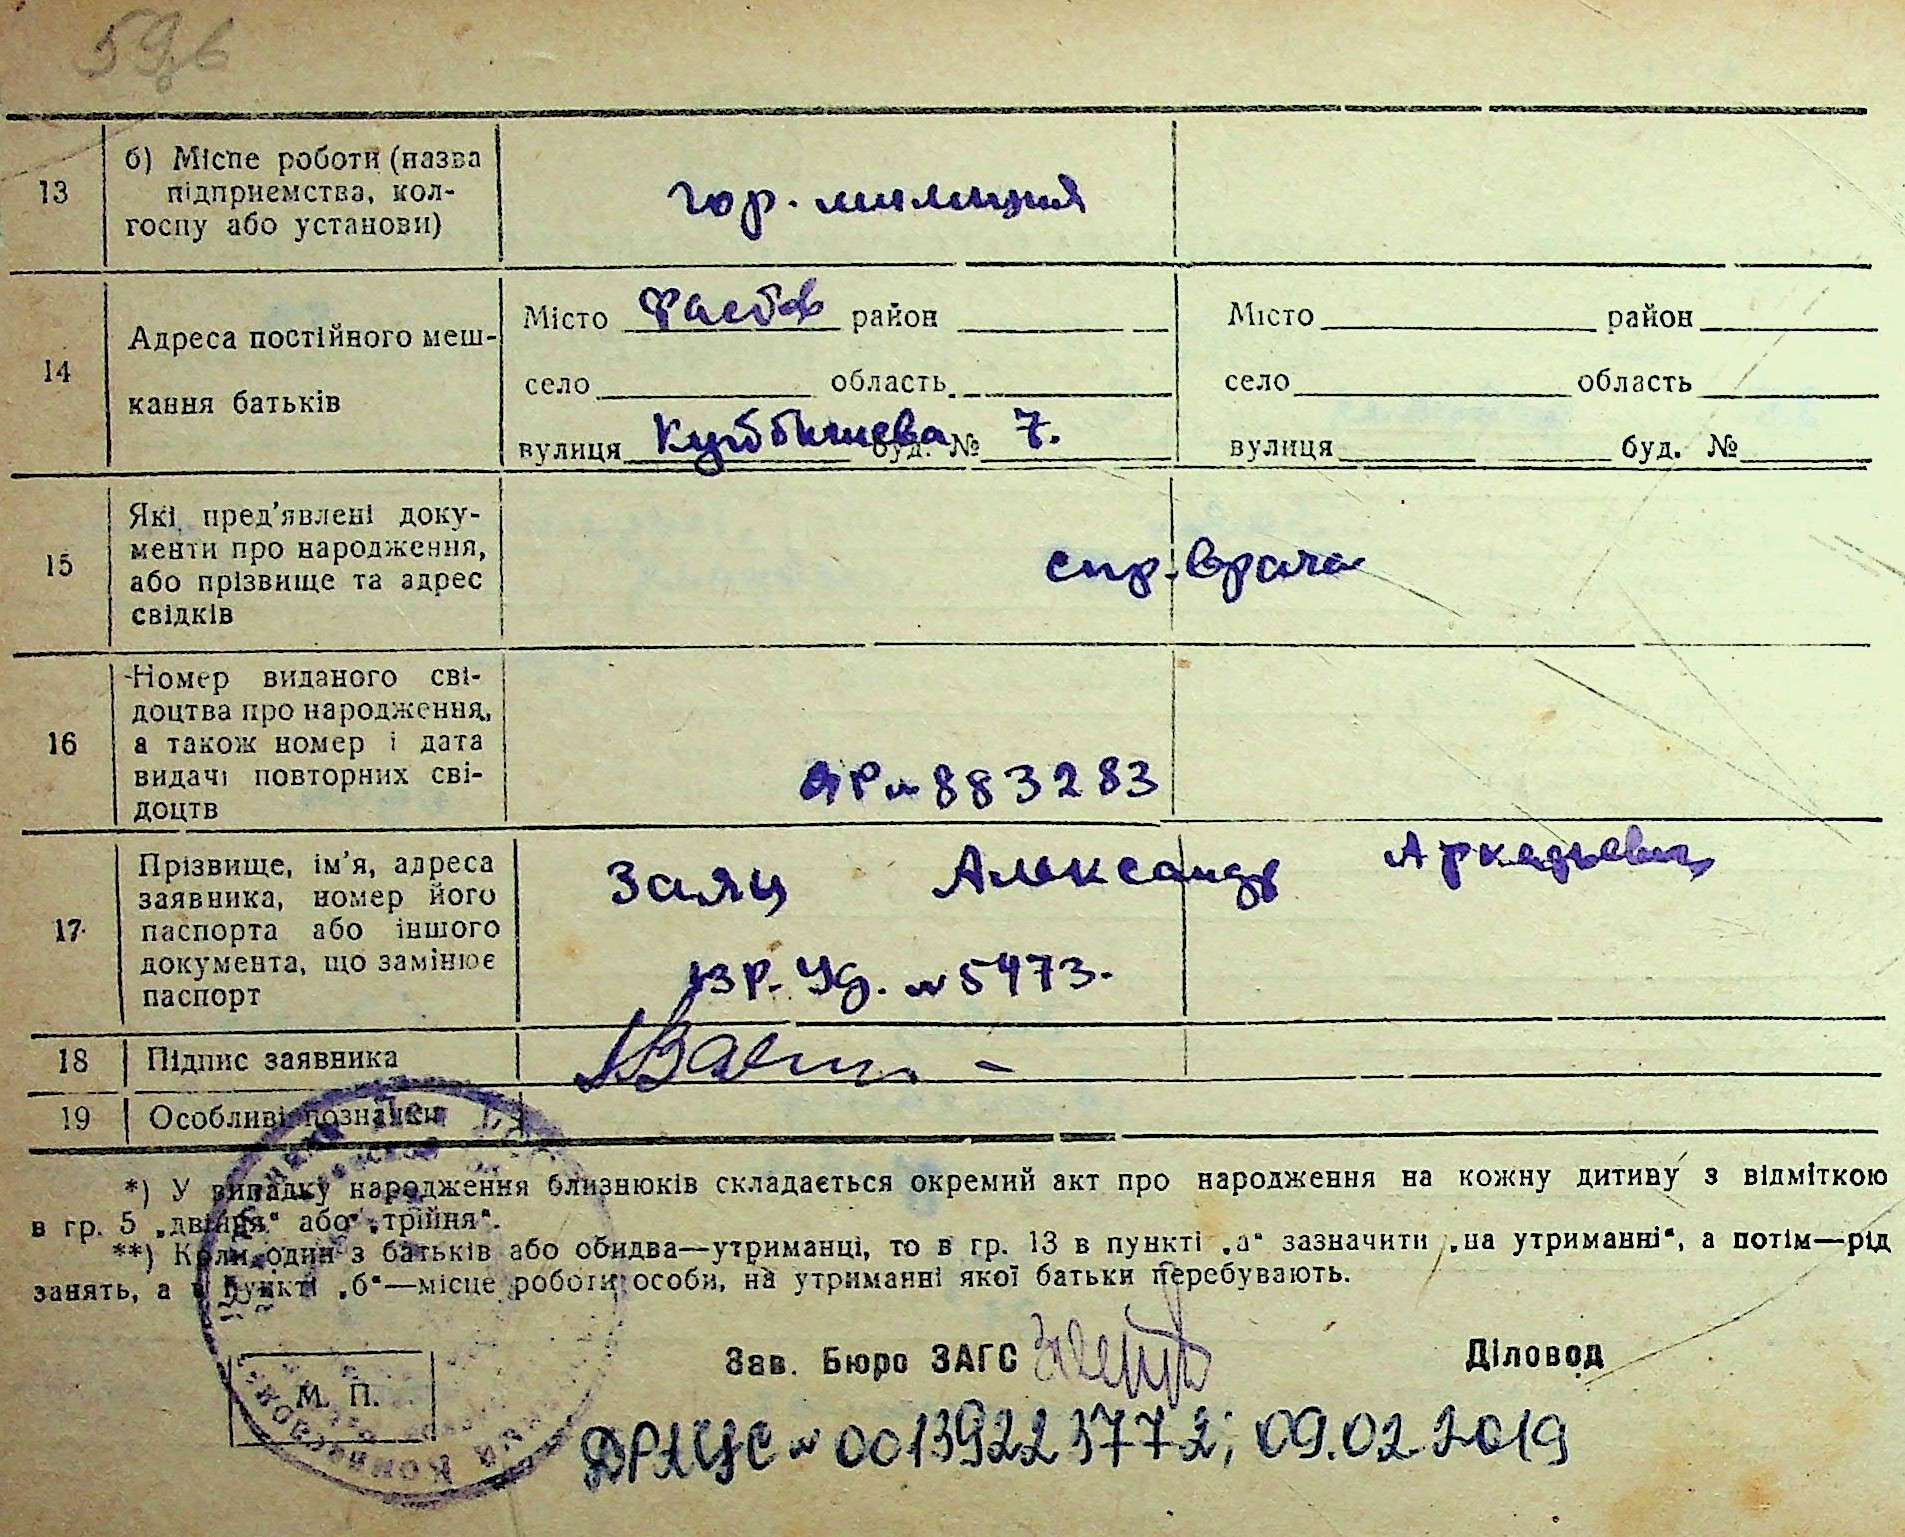 59б
13
б) Місце роботи (назва
підприємства, кол-
госпу або установи)
гор. милиция
14
Адреса постійного меш-
кання батьків
Місто Фастов район
село область
вулиця Куйбышева буд. № 7.
Місто район
село область
вулиця буд. №
15
Які пред'явлені доку-
менти про народження,
або прізвище та адрес
свідків
спр. врача
16
Номер виданого сві-
доцтва про народження,
а також номер і дата
видачі повторних сві-
доцтв
ЯР № 883283
17
Прізвище, ім'я, адреса
заявника, номер його
паспорта або іншого
документа, що замінює
паспорт
Заяц Александр Аркадьевич
вр. уд. № 5473.
18
Підпис заявника
19
Особливі познački
*) У випадку народження близнюків складається окремий акт про народження на кожну дитину з відміткою
в гр. 5 „двійня“ або „трійня“.
**) Коли один з батьків або обидва—утриманці, то в гр. 13 в пункті „а“ зазначити „на утриманні“, а потім—рід
занять, а в пункті „б“—місце роботи особи, на утриманні якої батьки перебувають.
М. П.
Зав. Бюро ЗАГС
Діловод
ДРАЦС № 00139223772; 09.02.2019